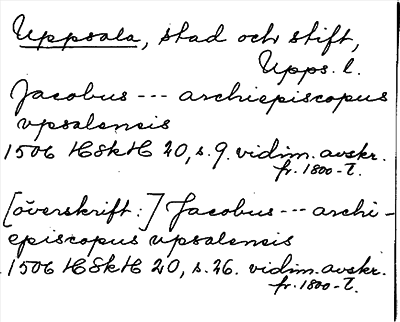 Uppsala, stad och stift,
Upps. l.
Jacobus --- archiepiscopus
upsalensis
1506 HSkH 20, s. 9. vidim. avskr.
fr. 1800-t.
[överskrift:] Jacobus --- archi-
episcopus upsalensis
1506 HSkH 20, s. 26. vidim. avskr.
fr. 1800-t.